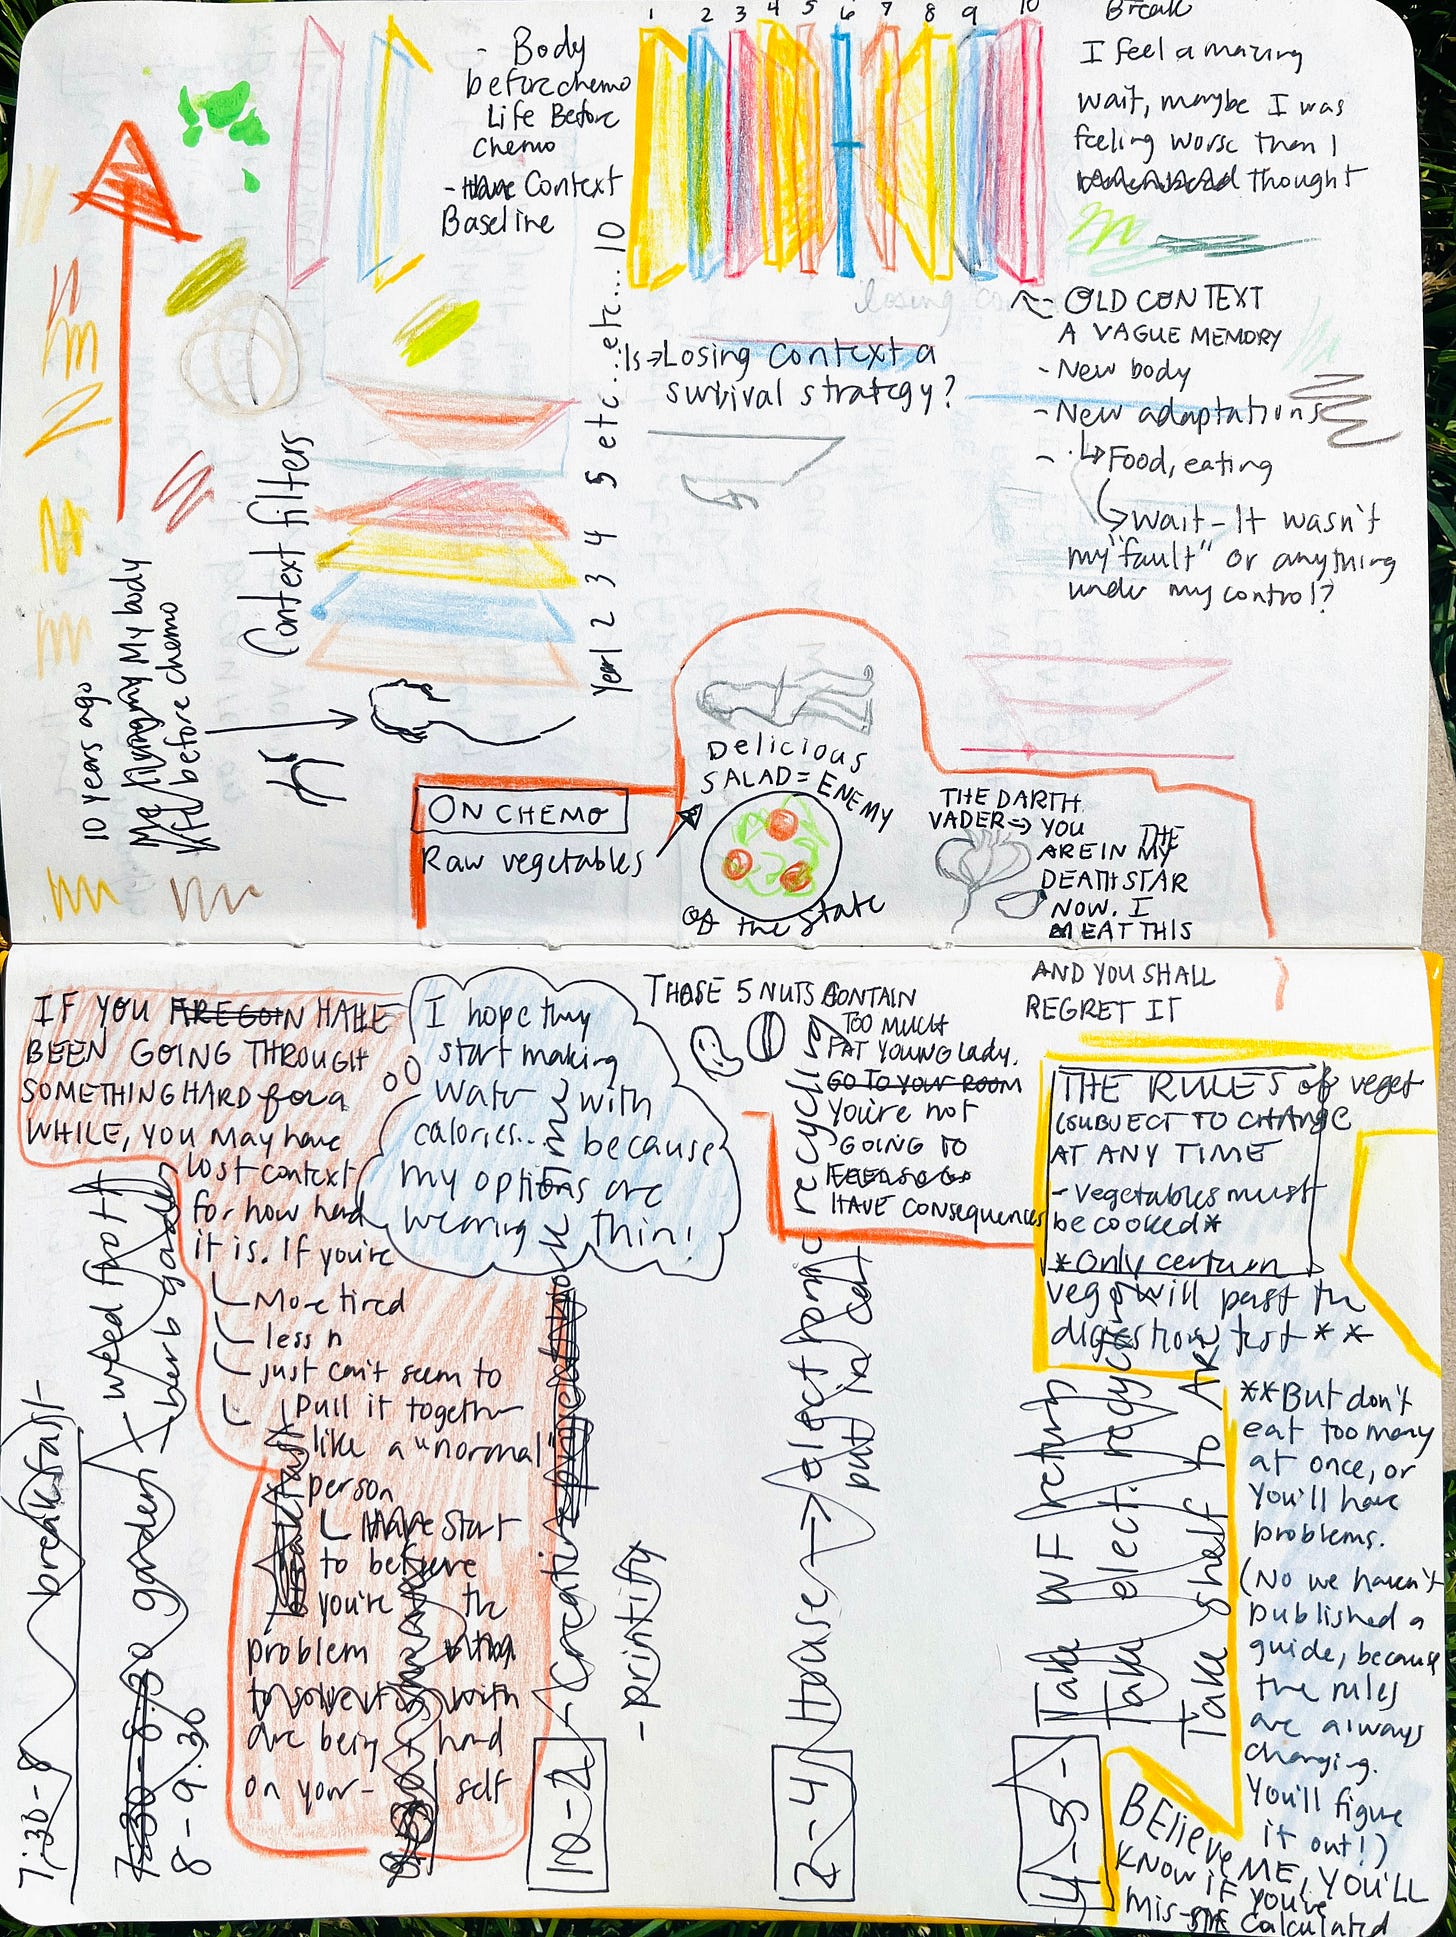 - Body
before chemo
Life Before
chemo
- Have Context
Baseline
1 2 3 4 5 6 7 8 9 10
Break
I feel amazing
wait, maybe I was
feeling worse than I
remembered thought
losing
← - OLD CONTEXT
A VAGUE MEMORY
- New body
- New adaptations
- ↳ Food, eating
↳ Wait - It wasn't
my "fault" or anything
under my control?
Is → Losing context a
survival strategy?
Context filters
Year 1 2 3 4 5 etc... etc... 10
10 years ago
My body
before chemo
ON CHEMO
Raw vegetables
Delicious
SALAD = ENEMY
of the state
THE DARTH
VADER ⇒ YOU
ARE IN MY THE
DEATH STAR
NOW. I
EAT THIS
AND YOU SHALL
REGRET IT
IF YOU ARE GOIN HAVE
BEEN GOING THROUGH
SOMETHING HARD for a
WHILE, YOU May have
lost context
for how hard
it is. If you're
More tired
less n
just can't seem to
pull it together
like a "normal"
person
Have start
to believe
you're the
problem
with
are being hard
on your- self
I hope they
start making
water with
calories... because
my options are
wearing thin!
THOSE 5 NUTS CONTAIN
TOO MUCH
FAT YOUNG lady.
GO TO YOUR ROOM
You're not
GOING TO
HAVE CONSEQUENCES
THE RULES of veget
(SUBJECT TO CHANGE
AT ANY TIME
- Vegetables must
be cooked*
* Only certain
vegg will past the
digestion test * *
**But don't
eat too many
at once, or
You'll have
problems.
(No we haven't
published a
guide, because
the rules
are always
changing.
You'll figure
it out!)
BElieve ME, YOU'LL
KNOW IF YOU'VE
mis- calculated
7:30-8 breakfast
7:30-8:30 garden
weed front
herb garden
8-9:30
breakfast
10-2 - Creative
- printify
2-4 House → elect romic recycling
put in car
4-5 - Take WF return
Take elect. recycl
Take shelf to